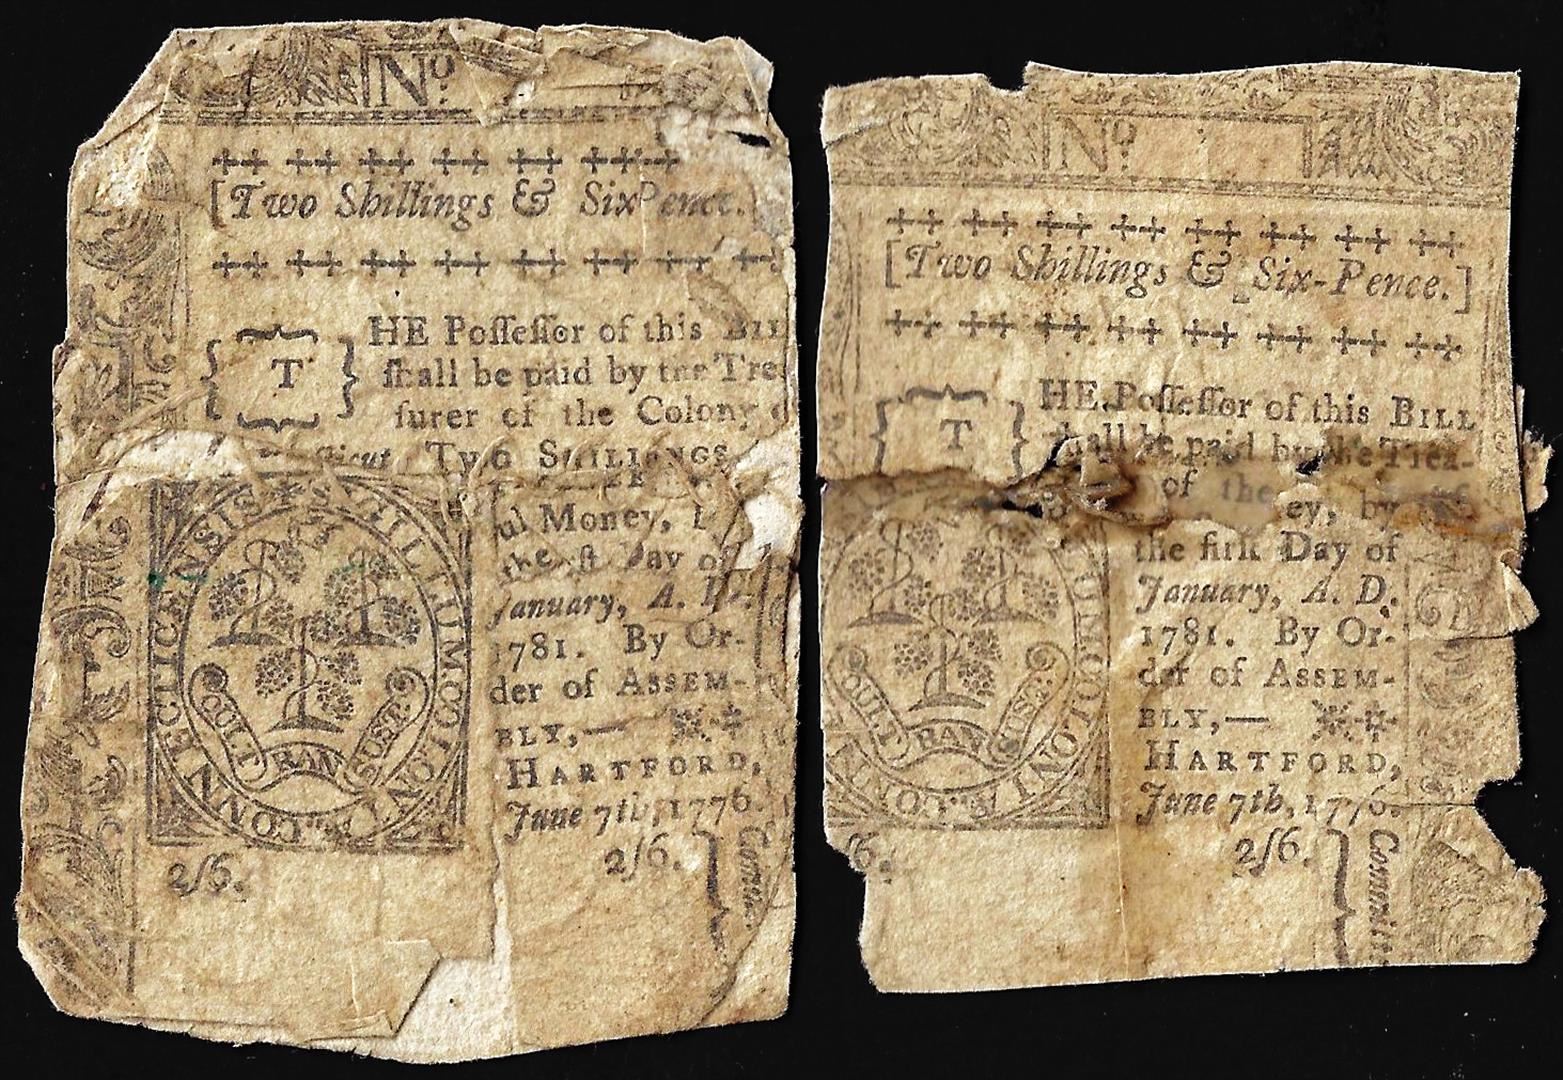 Nº
[Two Shillings & SixPence.
T
HE Poſſeſſor of this BILL
ſhall be paid by the Trea
ſurer of the Colony of
Two SHILLINGS
ul Money,
the Day of
January, A. D.
1781. By Or-
der of ASSEM-
BLY,—
HARTFORD,
June 7th, 1776.
SIGILLUM COLONIÆ CONNECTICENSIS
QUI TRAN SUST.
2/6.
2/6.
Commit
Nº
[Two Shillings & Six-Pence.]
T
HE Poſſeſſor of this BILL
ſhall be paid by the Trea-
of the
ey, by
the firſt Day of
January, A. D.
1781. By Or-
der of ASSEM-
BLY,—
HARTFORD,
June 7th, 1776.
QUI TRAN SUST.
6.
2/6.
Committee